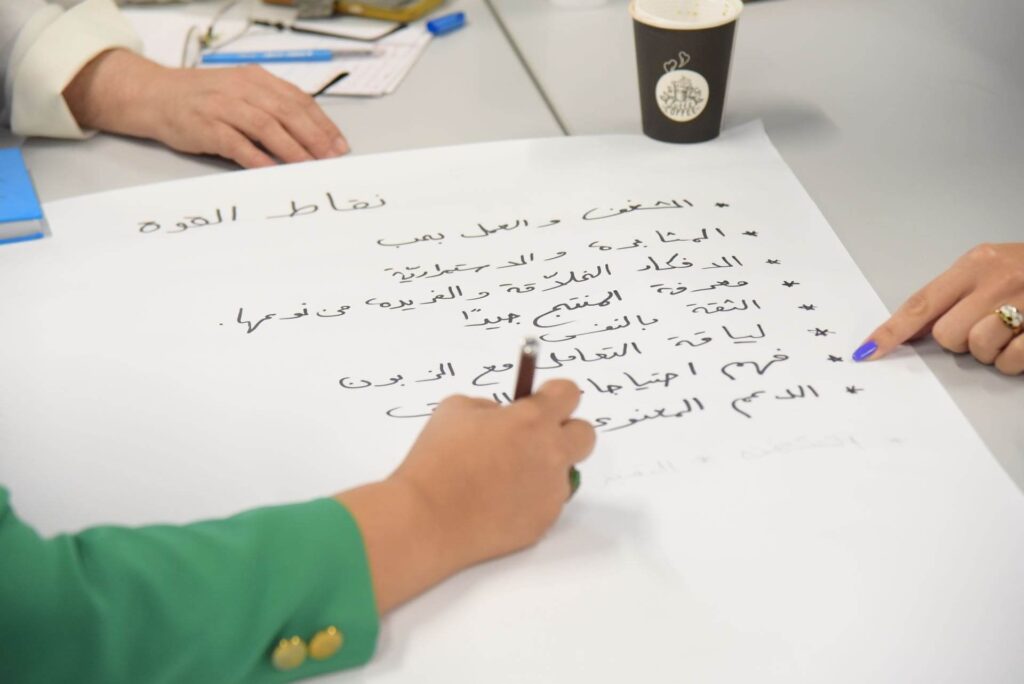 نقاط القوة
* الشغف والعمل بحب
* المثابرة والاستمراريّة
* الافكار الخلاّقة والفريده من نوعها.
* معرفة المنتج جيدًا
* الثقة بالنفس
* لياقة التعامل مع الزبون
* فهم احتياجات
* الدعم المعنوي